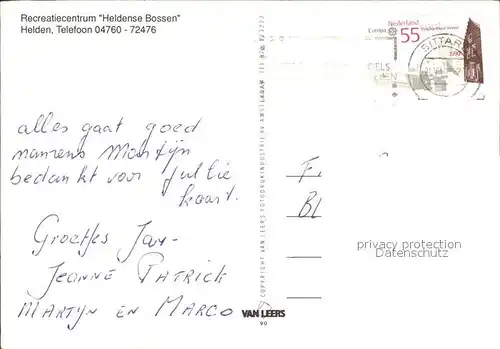 Recreatiecentrum "Heldense Bossen"
Helden, Telefoon 04760 - 72476
Nederland
Europa
55
1990
SITTARD
alles gaat goed
Martijn
bedankt voor jullie
kaart.
Groetjes Jan -
Jeanne PATRICK
MARTIJN EN MARCO
F.
BL
COPYRIGHT VAN LEERS FOTODRUKINDUSTRIE BV AMSTERDAM
VAN LEERS
90
privacy protection
Datenschutz